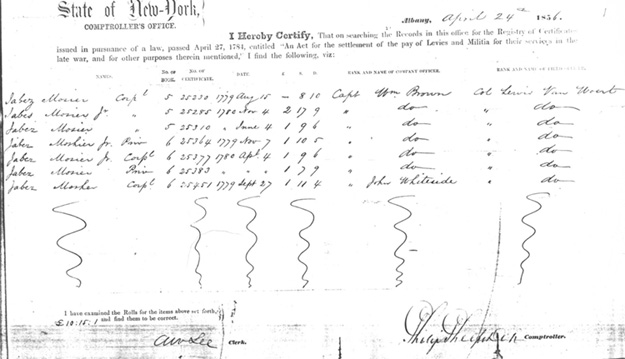 State of New-York,
COMPTROLLER'S OFFICE.
Albany, April 24th 1856.
I Hereby Certify, That on searching the Records in this office for the Registry of Certificates
issued in pursuance of a law, passed April 27, 1784, entitled "An Act for the settlement of the pay of Levies and Militia for their services in the
late war, and for other purposes therein mentioned," I find the following, viz:
NAMES. NO. OF BOOK. NO. OF CERTIFICATE. DATE £ S D RANK AND NAME OF COMPANY OFFICER. RANK AND NAME OF
Jabez Mosier Corpl 5 25230 1779 Aug 15 — 8 10 Capt Wm Brown Col Lewis Van Woert
Jabes Mosier Jr. " 5 25285 1780 Nov 4 2 17 9 " do " do
Jabez Mosier " 5 25310 " June 4 1 9 6 " do " do
Jabez Moshier Jr. Priv 6 25364 1779 Nov 7 1 10 5 " do " do
Jabez Mosier Jr. Corpl 6 25377 1780 Apl 4 1 9 6 " do " do
Jabez Mosier Priv 6 25383 " " " 1 7 9 " do " do
Jabez Mosher Corpl 6 25451 1779 Sept 27 1 11 4 " John Whiteside " do
I have examined the Rolls for the items above set forth,
£10:15:1 and find them to be correct.
Clerk.
Comptroller.